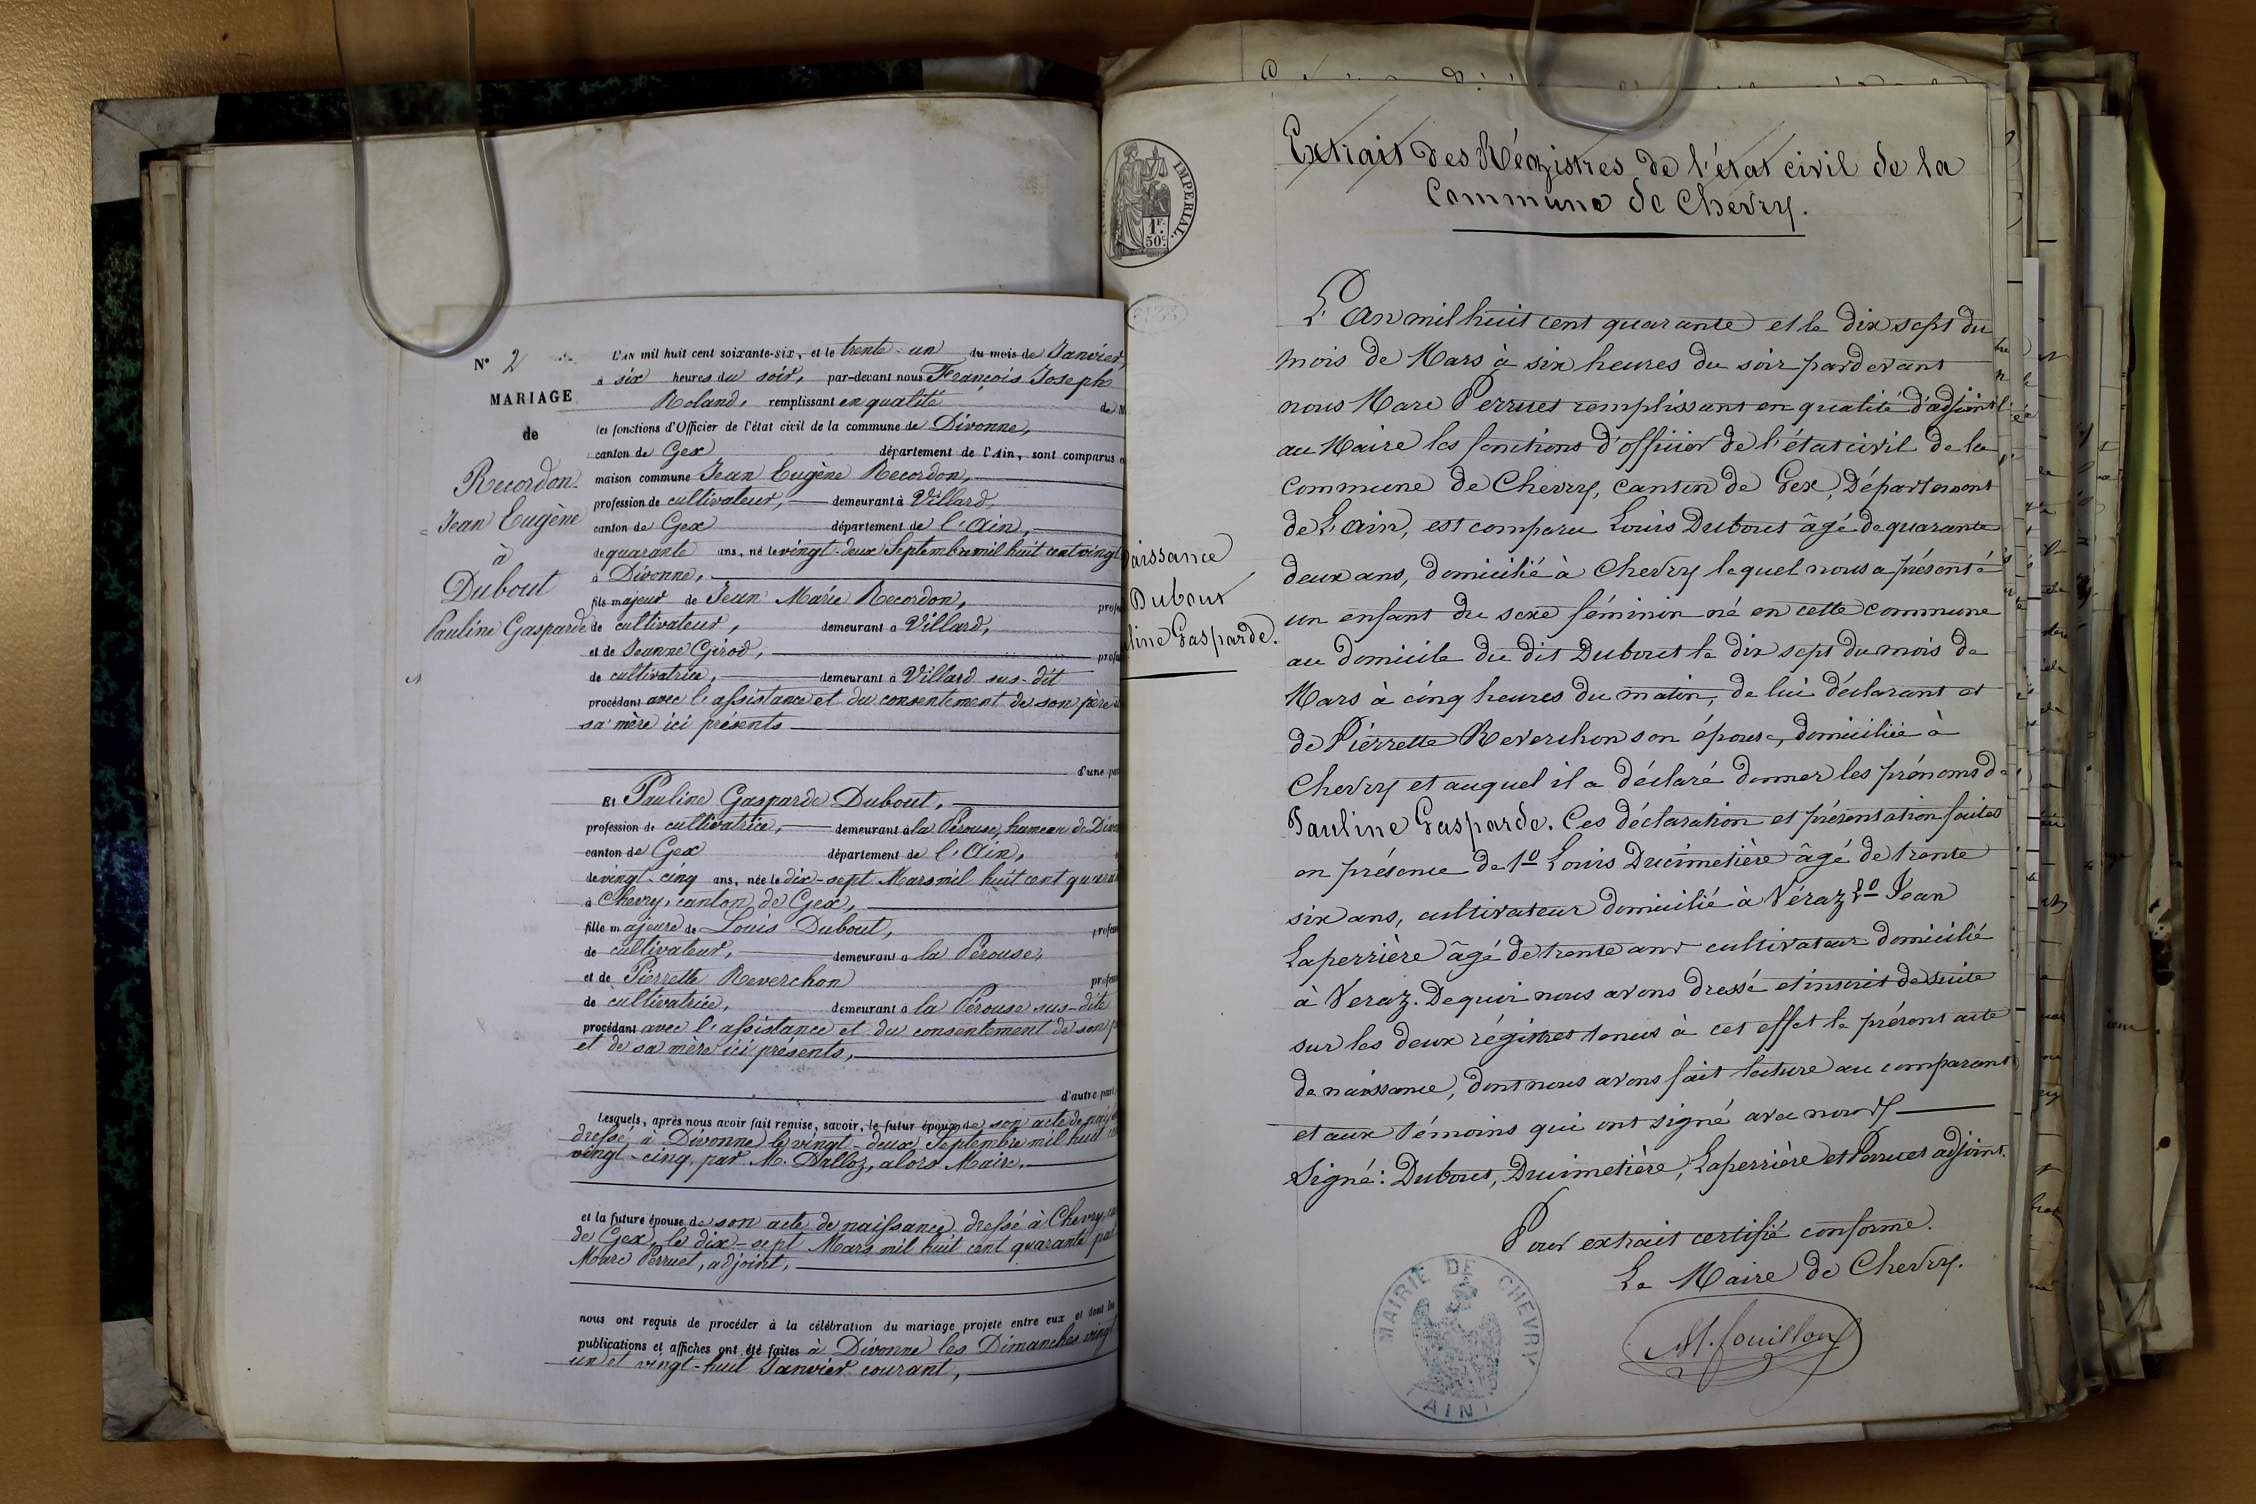 N° 2
MARIAGE
de
Recordon
Jean Eugène
à
Dubout
Pauline Gasparde
L'AN mil huit cent soixante-six, et le trente-un du mois de Janvier,
à six heures du soir, par-devant nous François Joseph
Roland, remplissant en qualité de
les fonctions d'Officier de l'état civil de la commune de Divonne,
canton de Gex département de l'Ain, sont comparus
maison commune Jean Eugène Recordon,
profession de cultivateur, demeurant à Villard,
canton de Gex département de l'Ain,
de quarante ans, né le vingt-deux Septembre mil huit cent vingt
à Divonne,
fils majeur de Jean Marie Recordon,
de cultivateur, demeurant à Villard,
et de Jeanne Girod,
de cultivatrice, demeurant à Villard sus-dit
procédant avec l'assistance et du consentement de son père
sa mère ici présents
d'une
Et Pauline Gasparde Dubout,
profession de cultivatrice, demeurant à la Pérouse, hameau de
canton de Gex département de l'Ain,
de vingt-cinq ans, née le dix-sept Mars mil huit cent
à Chevry, canton de Gex,
fille majeure de Louis Dubout,
de cultivateur, demeurant à la Pérouse,
et de Pierrette Reverchon
de cultivatrice, demeurant à la Pérouse sus-dite
procédant avec l'assistance et du consentement de son
et de sa mère ici présents,
d'autre part
Lesquels, après nous avoir fait remise, savoir, le futur époux de son acte de
dressé à Divonne le vingt-deux Septembre mil huit
vingt-cinq par M. Dalloz, alors Maire,
et la future épouse de son acte de naissance dressé à Chevry,
de Gex, le dix-sept Mars mil huit cent quarante par
Marc Perruet, adjoint,
nous ont requis de procéder à la célébration du mariage projeté entre eux et dont les
publications et affiches ont été faites à Divonne les Dimanches vingt
un et vingt-huit Janvier courant,
IMPERIAL.
1F.
50c.
Extrait des Régistres de l'état civil de la
Commune de Chevry.
Naissance
Dubout
Gasparde.
L'an mil huit cent quarante et le dix sept du
mois de Mars à six heures du soir pardevant
nous Marc Perruet remplissant en qualité d'adjoint
au Maire les fonctions d'officier de l'état civil de la
commune de Chevry, canton de Gex, Département
de L'ain, est comparu Louis Dubout âgé de quarante
deux ans, domicilié à Chevry lequel nous a présenté
un enfant du sexe féminin né en cette commune
au domicile du dit Dubout le dix sept du mois de
Mars à cinq heures du matin, de lui déclarant et
de Pierrette Reverchon son épouse, domiciliée à
Chevry et auquel il a déclaré donner les prénoms de
Pauline Gasparde. Ces déclaration et présentation faites
en présence de 1° Louis Ducimetière âgé de trente
six ans, cultivateur domicilié à Véraz 2° Jean
Laperrière âgé de trente ans cultivateur domicilié
à Veraz. De quoi nous avons dressé et inscrit de suite
sur les deux régistres tenus à cet effet le présent acte
de naissance, dont nous avons fait lecture au comparant
et aux témoins qui ont signé avec nous
Signé: Dubout, Ducimetière, Laperrière et Perruet adjoint.
Pour extrait certifié conforme.
Le Maire de Chevry.
M. Fouilloux
MAIRIE DE CHEVRY
(AIN)